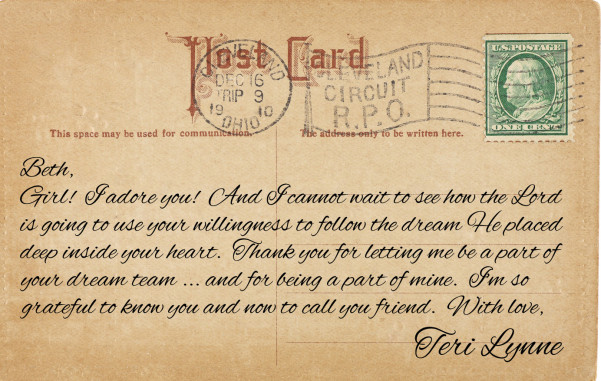 Post Card
CLEVELAND
DEC 16
TRIP 9
19 10
OHIO
CLEVELAND
CIRCUIT
R.P.O.
U.S. POSTAGE
ONE CENT
This space may be used for communication.
The address only to be written here.
Beth,
Girl! I adore you! And I cannot wait to see how the Lord
is going to use your willingness to follow the dream He placed
deep inside your heart. Thank you for letting me be a part of
your dream team ... and for being a part of mine. I'm so
grateful to know you and now to call you friend. With love,
Teri Lynne